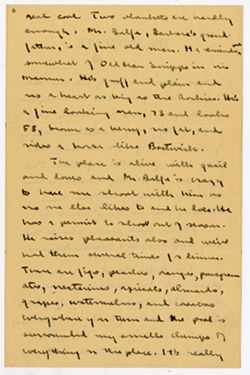 6
real cool. Two blankets are hardly
enough. Mr. Balfe, Barbara's grand-
father, is a fine old man. He reminds
somewhat of Old Man Scripps in his
manner. He's gruff and plain and
has a heart as big as the Rockies. He's
a fine looking man, 73 and looks
55, brown as a berry, no fat, and
rides a horse like
The place is alive with quail
and doves and Mr. Balfe is crazy
to have me shoot with him as
no one else likes to and he does. He
has a permit to shoot out of season.
He raises pheasants also and we've
had them several times for dinner.
There are figs, peaches, oranges, pomegran-
ates, nectarines, apricots, almonds,
grapes, watermelons, and casabas
everywhere you turn and the pool is
surrounded by smaller clumps of
everything on the place. It is really